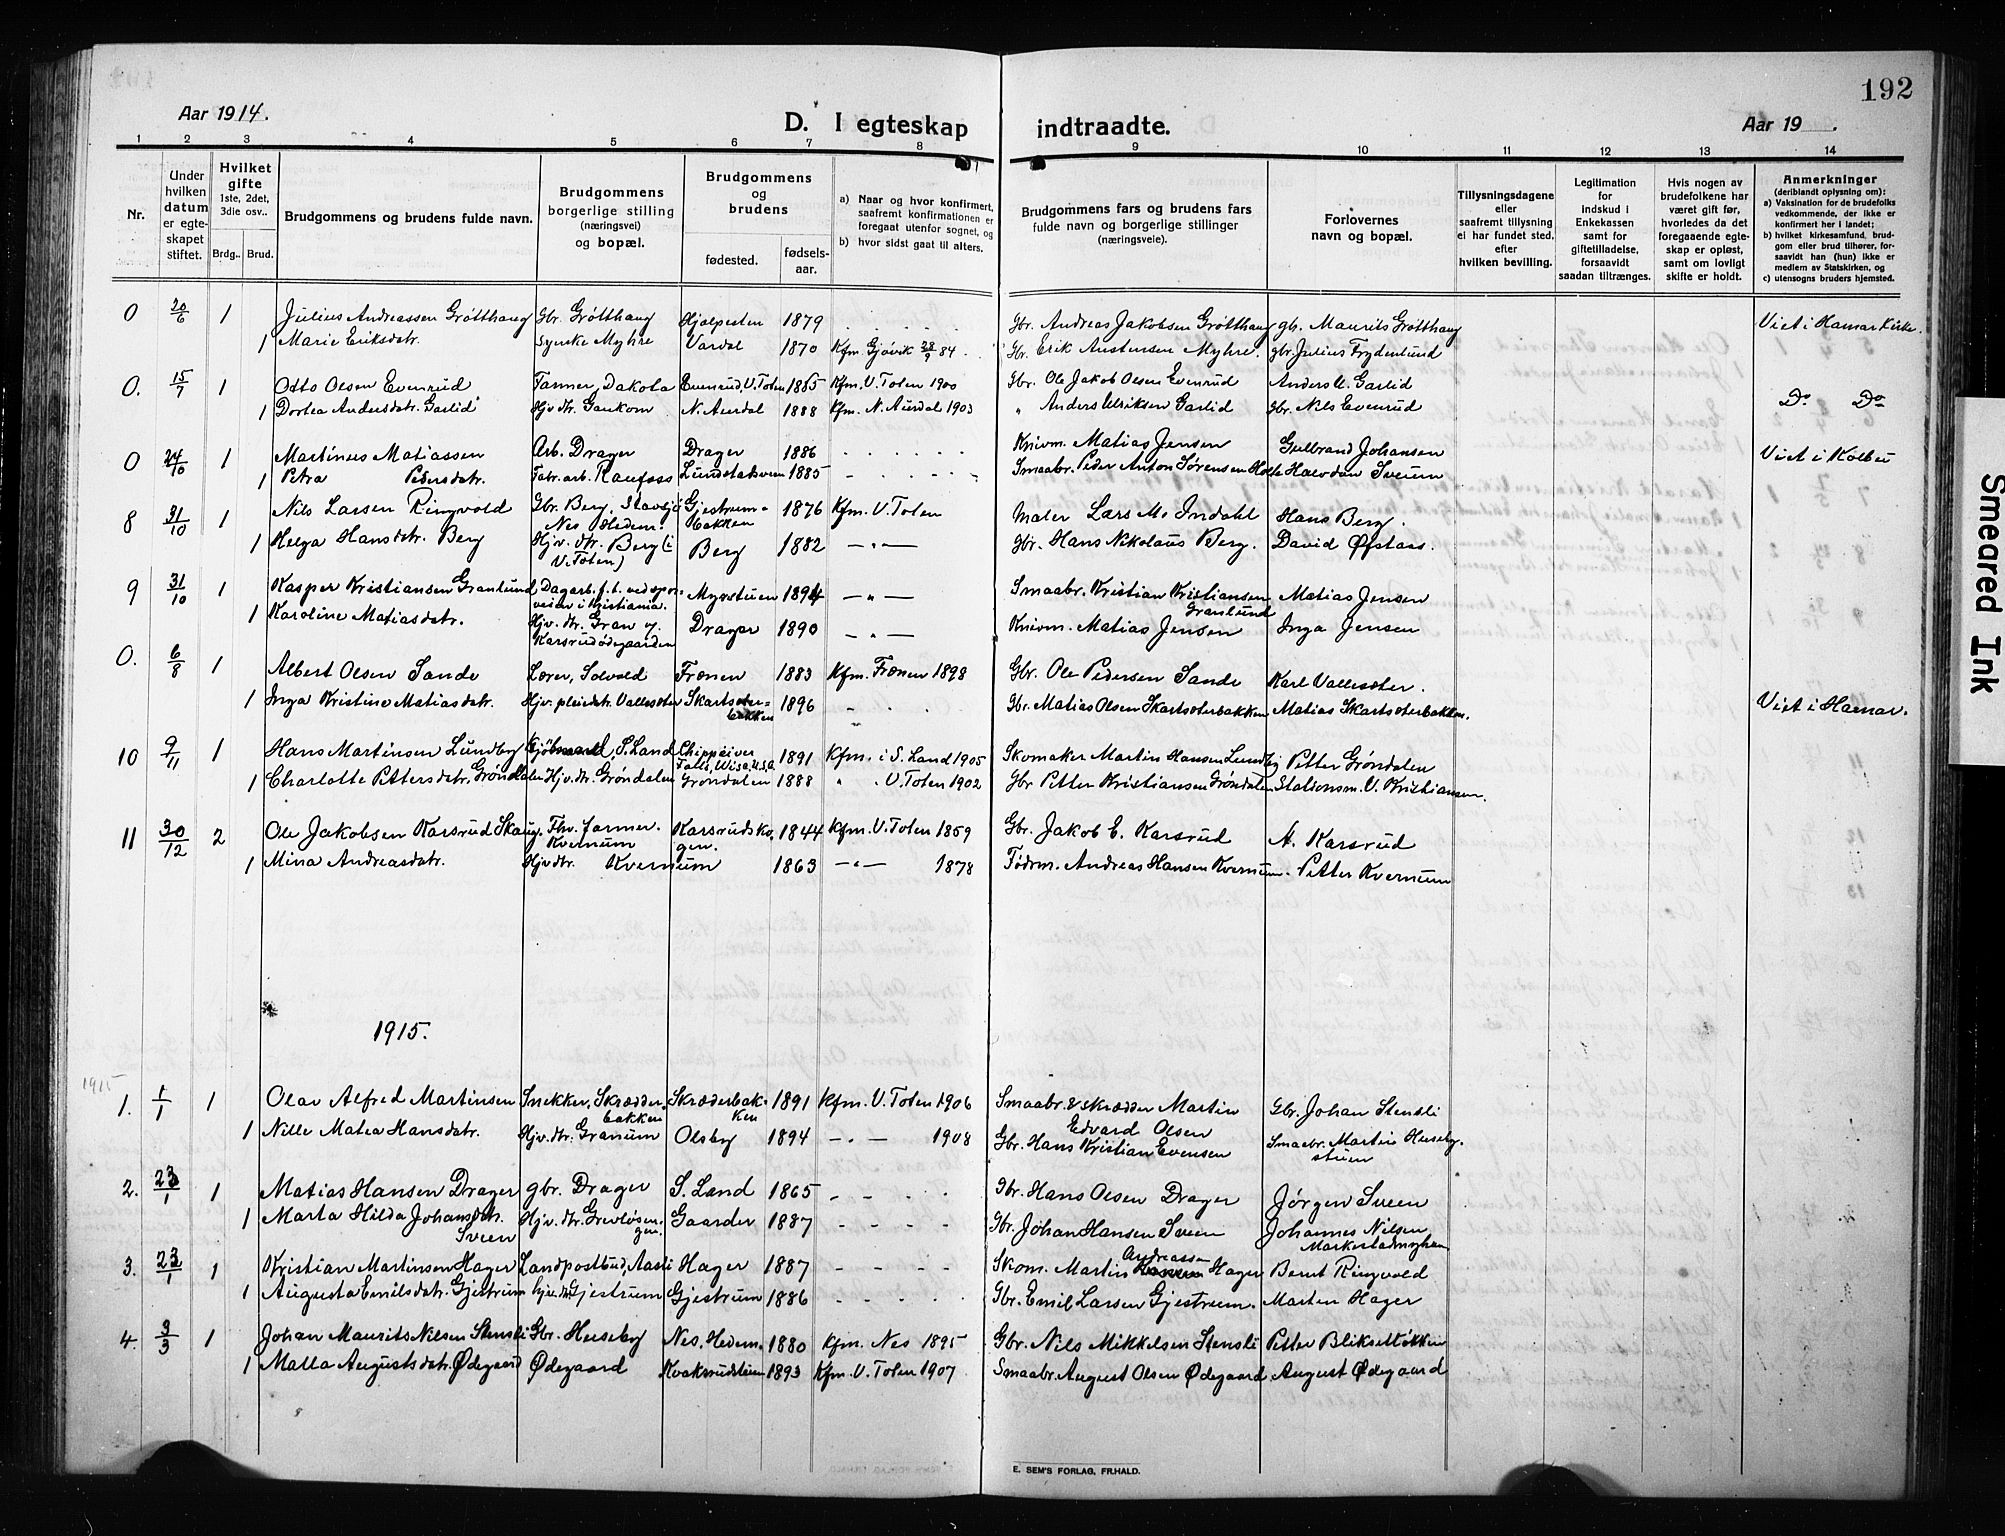 192
Aar 1914.
D. I egteskap indtraadte.
Aar 19 .
1 2 3 4 5 6 7 8 9 10 11 12 13 14
Nr.
Under hvilken datum er egteskapet stiftet.
Hvilket gifte 1ste, 2det, 3die osv..
Brdg.. Brud.
Brudgommens og brudens fulde navn.
Brudgommens borgerlige stilling (næringsvei) og bopæl.
Brudgommens og brudens
fødested. fødselsaar.
a) Naar og hvor konfirmert, saafremt konfirmationen er foregaat utenfor sognet, og
b) hvor sidst gaat til alters.
Brudgommens fars og brudens fars fulde navn og borgerlige stillinger (næringsveie).
Forlovernes navn og bopæl.
Tillysningsdagene eller saafremt tillysning ei har fundet sted, efter hvilken bevilling.
Legitimation for indskud i Enkekassen samt for giftetilladelse, forsaavidt saadan tiltrænges.
Hvis nogen av brudefolkene har været gift før, hvorledes da det foregaaende egteskap er opløst, samt om lovligt skifte er holdt.
Anmerkninger (deriblandt oplysning om):
a) Vaksination for de brudefolks vedkommende, der ikke er konfirmert her i landet;
b) hvilket kirkesamfund, brudgom eller brud tilhører, forsaavidt han (hun) ikke er medlem av Statskirken, og
c) utensogns bruders hjemsted.
0 20/6 1 Julius Andreassen Grøtthaug Gbr. Grøtthaug Hjelpesten 1879 Gbr. Andreas Jakobsen Grøtthaug gb. Maurits Grøtthaug Viet i Hamar Kirke.
1 Marie Eriksdatr. Syerske Myhre Vardal 1870 Kfm. Gjøvik 28/9 84. Gbr. Erik Austensen Myhre. gbr. Julius Frydenlund
0. 15/7 1 Otto Olsen Evenrud Farmer, Dakota Evenrud, V. Toten 1885 Kfm. V. Toten 1900 Gbr. Ole Jakob Olsen Evenrud Anders U. Garlid
1 Dortea Andersdatr. Garlid Hjv. dtr. Gaukom N. Aurdal 1888 Kfm. N. Aurdal 1903 " Anders Ulriksen Garlid gbr. Nils Evenrud Do Do
0 24/10 1 Martinus Matiassen Arb. Drager Drager 1886 Knivm. Matias Jensen Gulbrand Johansen Viet i Kolbu
1 Petra Pedersdatr. Fabr. arb. Raufoss Lundstaksveen 1885 Smaabr. Peder Anton Sørensen Holte Halvdan Sveum
8 31/10 1 Nils Larsen Ringvold Gbr. Berg, Stavsjø Nes Hedem. Gjestrumbakken 1876 Kfm. V. Toten Maler Lars M. Indahl Hans Berg.
1 Helga Hansdatr. Berg Hjv. dtr. Berg (i V. Toten) Berg 1882 — " — Gbr. Hans Nikolaus Berg. David Øfstaas.
9 31/10 1 Kasper Kristiansen Granlund Dagarb. f. t. ved sporveien i Kristiania. Myrstuen 1894 — " — Smaabr. Kristian Kristiansen Granlund Matias Jensen
1 Karoline Matiasdatr. Hjv. dtr. Gran og Karsrudødegaarden Drager 1890 — " — Knivm. Matias Jensen Inga Jensen
0. 6/8 1 Albert Olsen Sande Lærer, Solvold Frænen 1883 Kfm. Frænen 1898 Gbr. Ole Pedersen Sande Karl Vallesæter.
1 Inga Kristine Matiasdatr. Hjv. pleiedtr. Vallesæter Skartsæterbakken 1896 Gbr. Matias Olsen Skartsæterbakken Matias Skartsæterbakken. Viet i Hamar.
10 9/11 1 Hans Martinsen Lundby S. Land Chippeiver Falls, Wis. U.S.A. 1891 Kfm. i S. Land 1905 Skomaker Martin Hansen Lundby Petter Grøndalen
1 Charlotte Pettersdatr. Grøndalen Hjv. dtr. Grøndalen Grøndalen 1888 " V. Toten 1902 Gbr Petter Kristiansen Grøndalen Stationsm. V. Kristiansen.
11 30/12 2 Ole Jakobsen Karsrud Skaug. Fhv. farmer. Kvernum Karsrudskogen. 1844 Kfm. V. Toten 1859 Gbr. Jakob E. Karsrud A. Karsrud
1 Mina Andreasdatr. Hjv. dtr. Kvernum 1863 — " — 1878 Fødrm. Andreas Hansen Kvernum. Petter Kvernum
1915.
1915
1. 1/1 1 Olav Alfred Martinsen Snekker, Skrædderbakken Skræderbakken 1891 Kfm. V. Toten 1906 Smaabr. & skrædder Martin Edvard Olsen Gbr. Johan Stensli
1 Nille Matea Hansdatr. Hjv. dtr. Granum Olsby 1894 — " — 1908 Gbr. Hans Kristian Evensen Smaabr. Martin Husebystuen
2. 23/1 1 Matias Hansen Drager gbr. Drager S. Land 1865 Gbr. Hans Olsen Drager Jørgen Sveen
1 Marta Hilda Johansdatr. Sveen Hjv. dtr. Grevløsengen. Gaarder 1887 Gbr. Johan Hansen Sveen Johannes Nilsen
3. 23/1 1 Kristian Martinsen Hager Landpostbud, Aasli Hager 1887 Skom. Martin Andreassen Hager Bernt Ringvold
1 Augusta Emilsdatr. Gjestrum hjv. dtr. Gjestrum Gjestrum 1886 Gbr. Emil Larsen Gjestrum. Marten Hager
4. 3/3 1 Johan Maurits Nilsen Stensli Gbr. Huseby Nes, Hedem. 1880 Kfm. Nes 1895 Gbr. Nils Mikkelsen Stensli Petter
1 Malla Augustsdatr. Ødegaard Ødegaard Kvaksrudstuen 1893 Kfm. V. Toten 1907 Smaabr. August Olsen Ødegaard August Ødegaard
E. SEM'S FORLAG, FR.HALD.
Smeared Ink